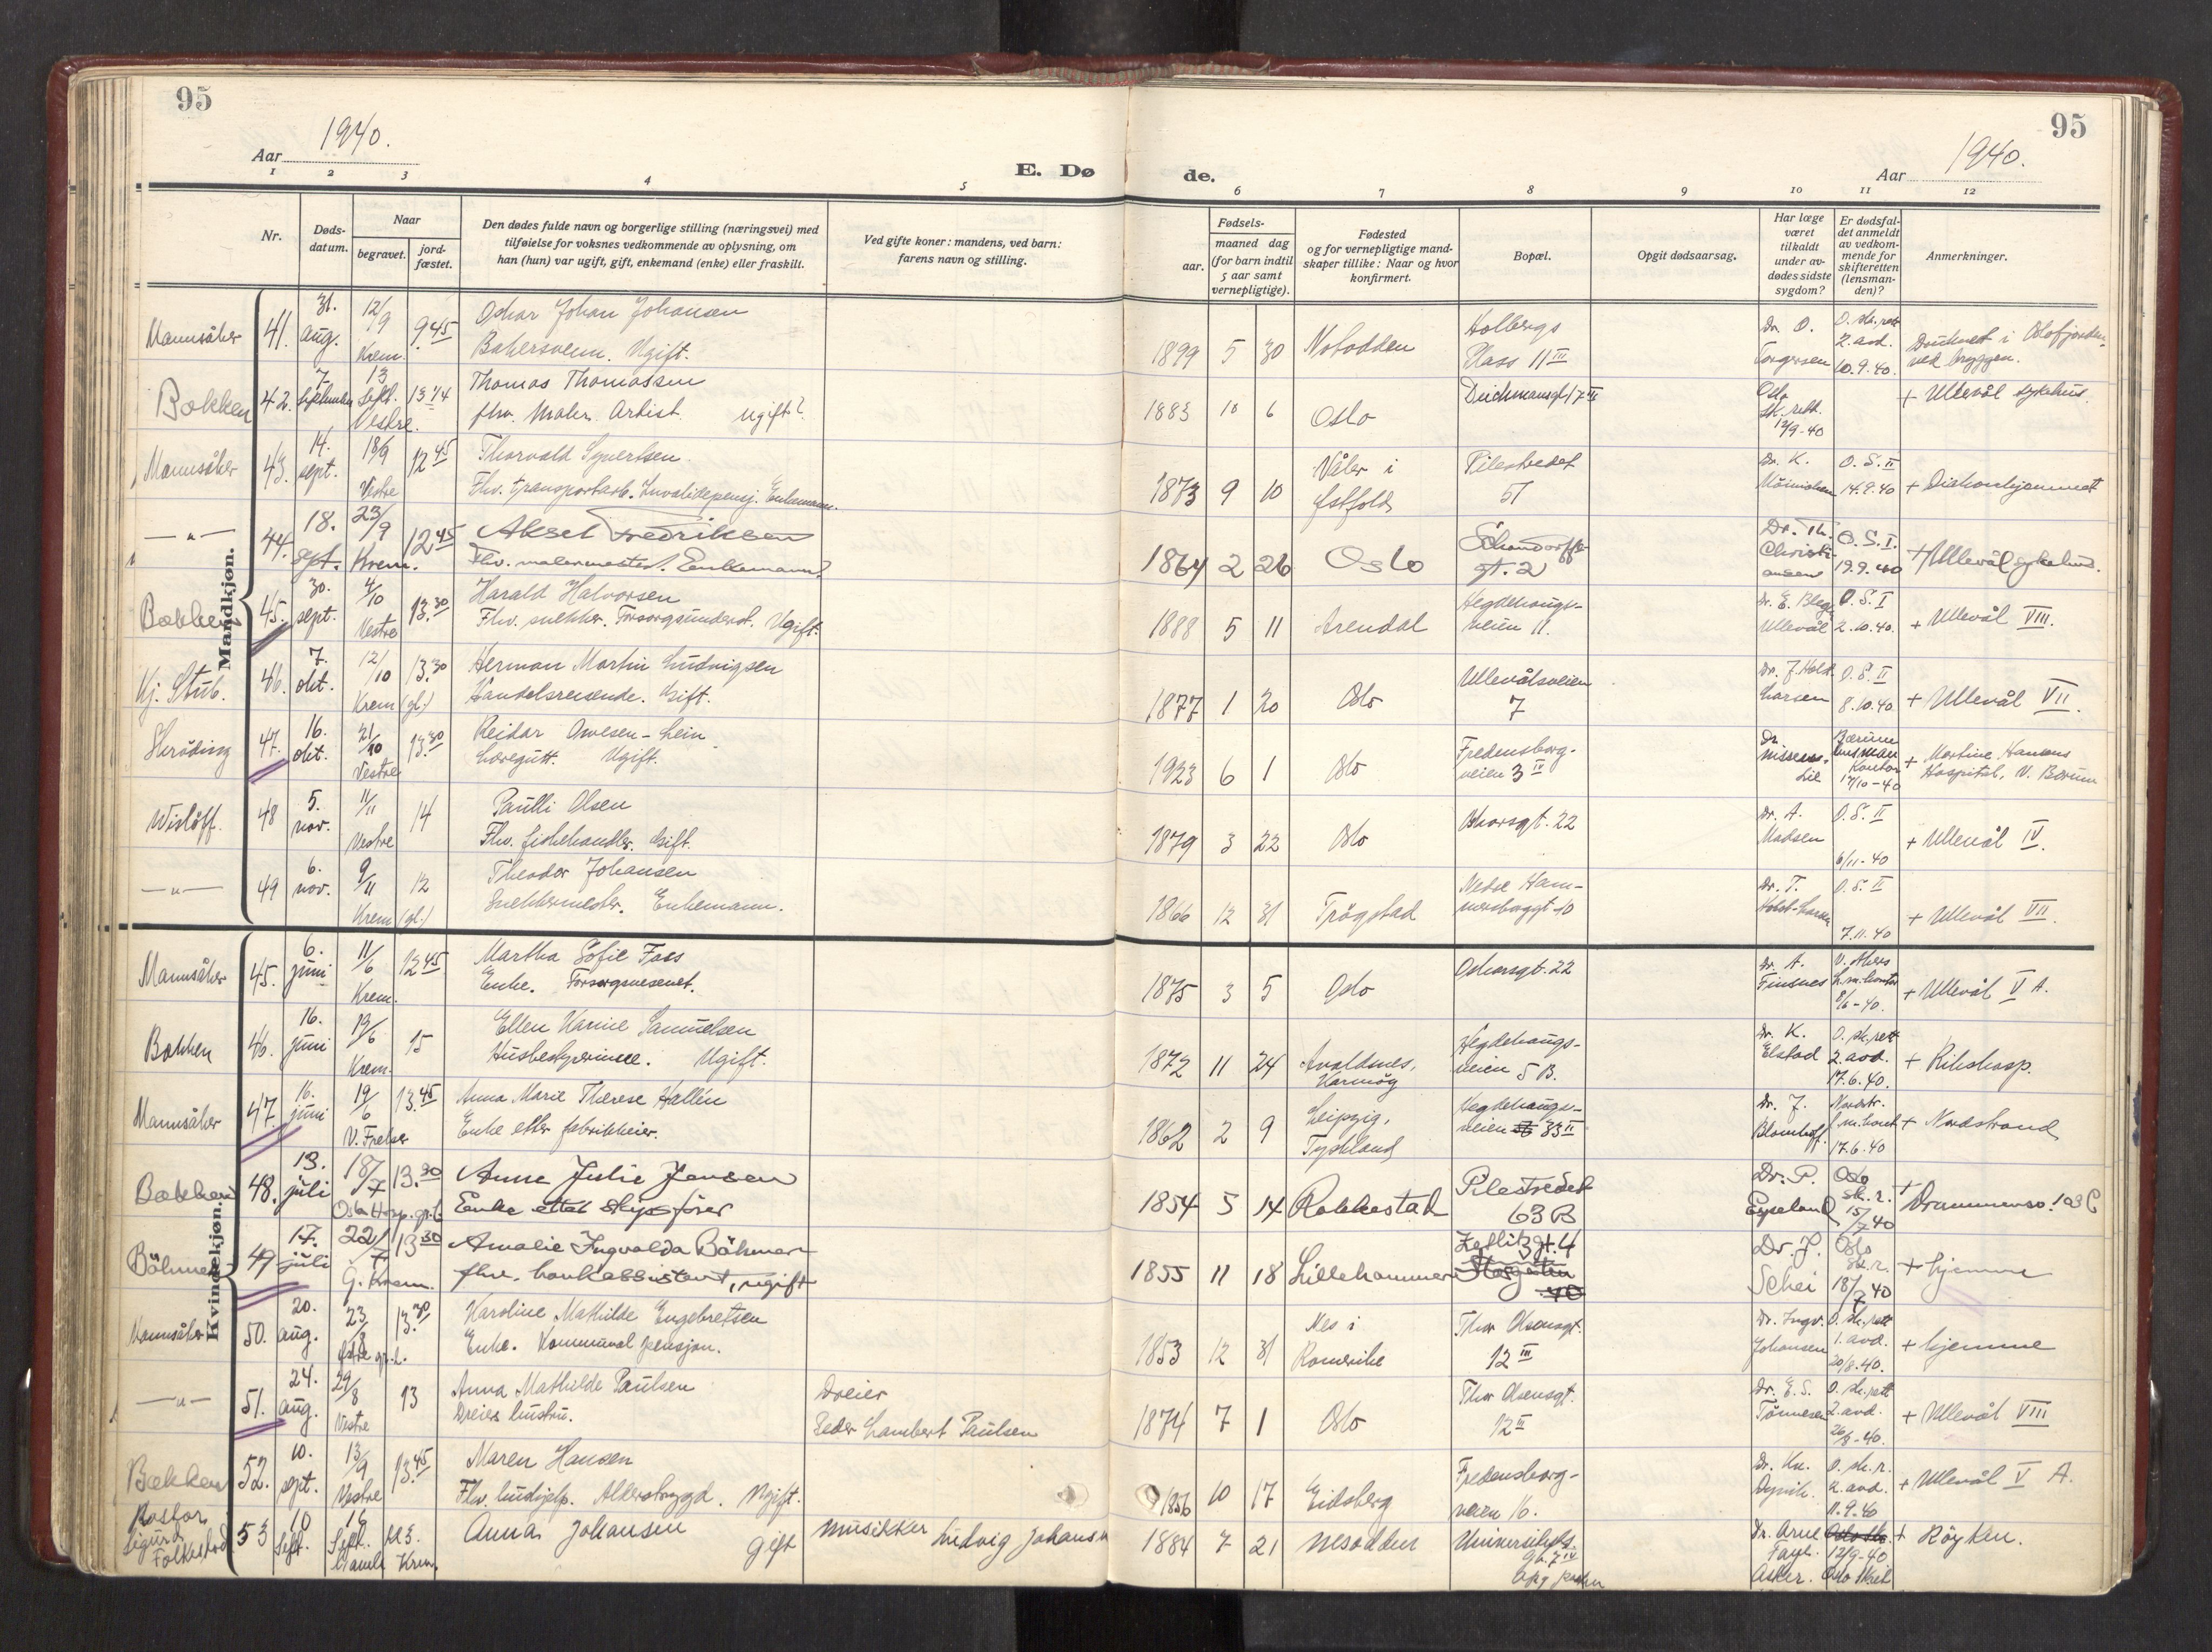 95
Aar 1940.
E. Dø
de.
Aar 1940.
95
1 2 3 4 5 6 7 8 9 10 11 12
Nr.
Døds-
datum.
Naar
begravet.
jord-
fæstet.
Den dødes fulde navn og borgerlige stilling (næringsvei) med
tilføielse for voksnes vedkommende av oplysning, om
han (hun) var ugift, gift, enkemand (enke) eller fraskilt.
Ved gifte koner: mandens, ved barn:
farens navn og stilling.
Fødsels-
aar.
maaned dag
(for barn indtil
5 aar samt
vernepligtige).
Fødested
og for vernepligtige mand-
skaper tillike: Naar og hvor
konfirmert.
Bopæl.
Opgit dødsaarsag.
Har læge
været
tilkaldt
under av-
dødes sidste
sygdom?
Er dødsfal-
det anmeldt
av vedkom-
mende for
skifteretten
(lensman-
den)?
Anmerkninger.
Mandkjøn.
Mannsåker 41. 31. aug. 12/9 Krem. 9.45 Oskar Johan Johansen
Bakersvenn. Ugift.
1899 5 30 Notodden Holbergs
Plass 11 III Dr. O.
Torgersen O. sk. rett
2. avd.
10.9.40. Druknet i Oslofjorden
ved bryggen.
Bakken 42. 7. september 13 sept. Vestre. 13 1/4 Thomas Thomassen
fhv. Maler. Artist. ugift?
1883 10 6 Oslo Deichmansgt 17 II Oslo
sk. rett.
12/9-40 + Ullevål sykehus.
Mannsåker 43. 14. sept. 18/9 Vestre 12 45 Thorvald Syvertsen
Fhv. transportarb. Invalidepensj. Enkemann.
1873 9 10 Våler i
Østfold Pilestredet
57 Dr. K. O. S. II
14.9.40 + Diakonhjemmet
—"— 44. 18. sept. 23/9 Krem. 12 45 Aksel Fredriksen
Fhv. malermester. Enkemann.
1864 2 26 Oslo Schandorffs
gt. 2 Dr. Th.
Christi-
ansen O. S. I.
19.9.40 + Ullevål sykehus.
Bakken 45. 30. sept. 4/10 Vestre 13.30 Harald Halvorsen
Fhv. snekker. Forsorgsunderst. Ugift.
1888 5 11 Arendal Hegdehaugs-
veien 11. Dr. E.
Ullevål O. S. I
2.10.40. + Ullevål VIII.
Kj. Stub. 46. 7. okt. 12/10 Krem (gl.) 13.30 Herman Martin Ludvigsen
Handelsreisende. Gift.
1877 1 20 Oslo Ullevålsveien
7 Dr. J. Holst
Larsen O. S. II
8.10.40 + Ullevål VII.
Skråding 47. 16. okt. 21/10 Vestre 13.30 Reidar Owesen-Lein
Læregutt. Ugift.
1923 6 1 Oslo Fredensborg-
veien 3 IV Dr.
Nissen-
Lie Bærum
lensman
Kontor
17/10-40 + Martina Hansens
Hospital, V. Bærum
Wisløff. 48 5. nov. 11/11 Vestre 14 Paulli Olsen
Fhv. fiskehandler. Gift.
1879 3 22 Oslo Oskarsgt. 22 Dr. A.
Madsen O. S. II
6/11-40 + Ullevål IV.
—"— 49 6. nov. 9/11 Krem (gl.) 12 Theodor Johansen
Snekkermester. Enkemann.
1866 12 31 Trøgstad Nedre Ham-
mersborggt. 10 Dr. T.
Holst-Larsen O. S. II
7.11.40 + Ullevål VII.
Kvindekjøn.
Mannsåker 45. 6. juni 11/6 Krem. 12 45 Martha Sofie Foss
Enke. Forsorgsvesenet.
1875 3 5 Oslo Oskarsgt. 22 Dr. A.
Finsnes V. Akers
l.m. kontor
8/6-40. + Ullevål V A.
Bakken 46. 16. juni 19/6 Krem. 15 Ellen Karine Samuelsen
Husbestyrerinne. Ugift.
1872 11 24 Avaldsnes,
Karmøy Hegdehaugs-
veien 5 B. Dr. K.
Elstad O. sk. rett
2. avd.
17.6.40. + Rikshosp.
Mannsåker 47. 16. juni 19/6 V. Frelser 13.45 Anna Marie Therese Hallén
Enke etter fabrikkeier.
1862 2 9 Leipzig,
Tyskland Hegdehaugs-
veien 33 II Dr. J.
Blomhoff Nordstr.
l.m. kont
17.6.40 + Nordstrand
Bakken 48. 13. juli 18/7 Oslo Hosp. gr.l. 13.30 Anna Julie Jensen
Enke etter skipsfører
1854 5 14 Rakkestad Pilestredet
63 B Dr. P.
Espeland Oslo
sk. r.
15/7 40 + Drammensv. 103 C
Böhmer 49 17. juli 22/7 G. Krem. 13 30 Amalie Ingvalda Böhmer
fhv. bankassistent, ugift
1855 11 18 Lillehammer Zetlitzgt. 4
Storgaten
40 Dr. J.
Schei Oslo
sk. r.
18/7 40 + hjemme
Mannsåker 50. 20. aug. 23/8 Østre gr.l. 13.30 Karoline Mathilde Engebretsen
Enke. Kommunal pensjon.
1853 12 31 Nes i
Romerike Thor Olsensgt.
12 III Dr. Ingv.
Johansen O. sk. rett
1. avd.
20/8.40. + hjemme
—"— 51. 24. aug. 29/8 Vestre 13 Anna Mathilde Paulsen
Dreiers hustru. Dreier
Peder Lambert Paulsen
1874 7 1 Oslo Thor Olsensgt.
12 II Dr. E. S.
Tönnesen O. sk. rett
2. avd.
26/8-40. + Ullevål VIII
Bakken 52. 10. sept. 13/9 Vestre 13.45 Maren Hansen
Fhv. hushjelp. Alderstrygd. Ugift.
1856 10 17 Eidsberg Fredensborg-
veien 16. Dr. Kn. O. sk. r.
2. avd.
11.9.40 + Ullevål V A.
Pastor
Sigurd
Folkestad 53 10 Sept. 16 Sept. Gamle Krem. kl 3. Anna Johansen gift musikker Ludvig Johansen
1884 7 21 Nesodden Universitets
gt. 7 IV
Dr. Arne
Asker. 12/9-40
Oslo Skif + Røyken.